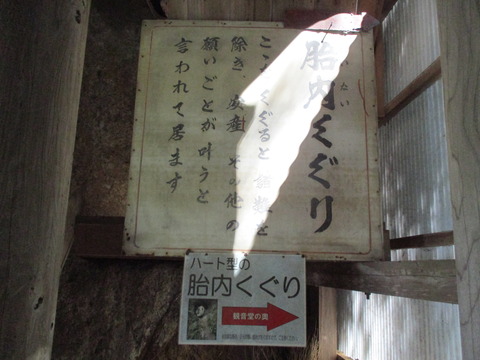 胎内くぐり
たい ない
ここをくぐると 厄難を
除き 安産 その他の
願いごとが叶うと
言われて居ます
ハート型の
胎内くぐり
観音堂の奥